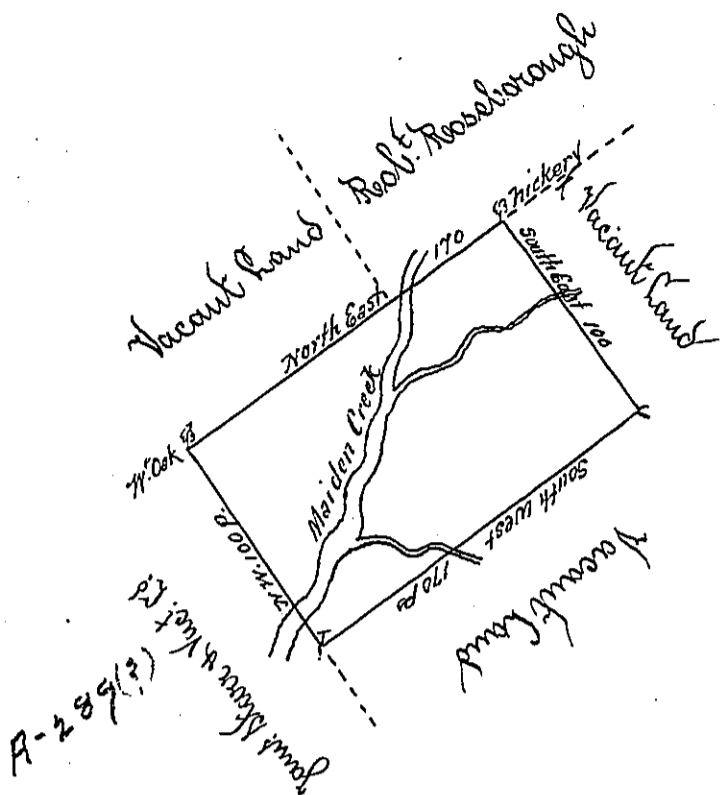 Robt. Roseborough
Vacant Land
hickery
Vacant Land
170
North East
South East 100
Maiden Creek
Wt. Oak
N.W. 100 p.
South West
170 ps
Vacant Land
A-289(?)